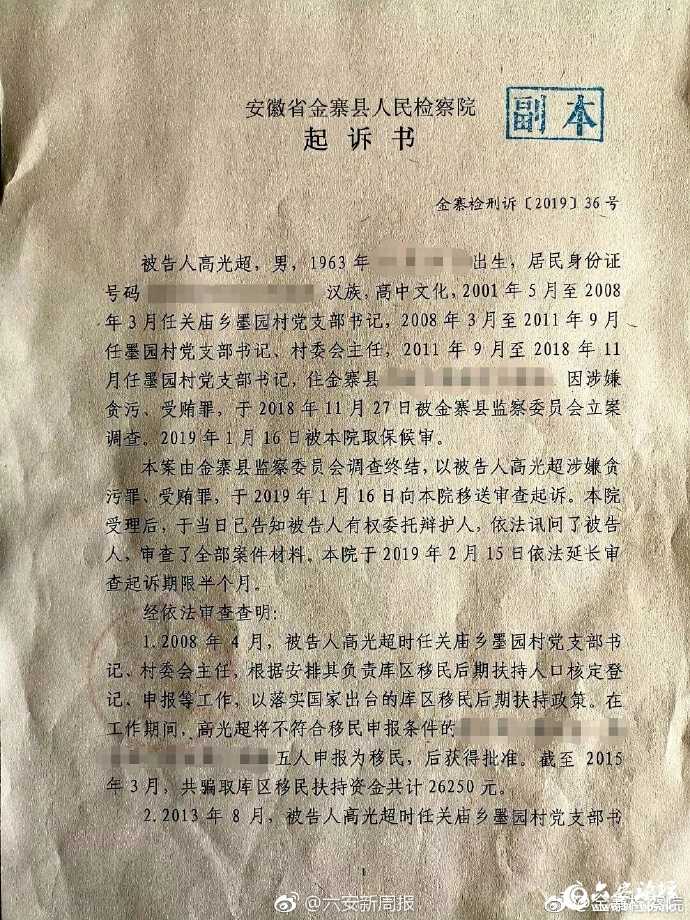 安徽省金寨县人民检察院
副本
起诉书
金寨检刑诉〔2019〕36号
被告人高光超，男，1963年 出生，居民身份证
号码 汉族，高中文化，2001年5月至2008
年3月任关庙乡墨园村党支部书记，2008年3月至2011年9月
任墨园村党支部书记、村委会主任，2011年9月至2018年11
月任墨园村党支部书记，住金寨县 因涉嫌
贪污、受贿罪，于2018年11月27日被金寨县监察委员会立案
调查。2019年1月16日被本院取保候审。
本案由金寨县监察委员会调查终结，以被告人高光超涉嫌贪
污罪、受贿罪，于2019年1月16日向本院移送审查起诉。本院
受理后，于当日已告知被告人有权委托辩护人，依法讯问了被告
人，审查了全部案件材料。本院于2019年2月15日依法延长审
查起诉期限半个月。
经依法审查查明：
1.2008年4月，被告人高光超时任关庙乡墨园村党支部书
记、村委会主任，根据安排其负责库区移民后期扶持人口核定登
记、申报等工作，以落实国家出台的库区移民后期扶持政策。在
工作期间，高光超将不符合移民申报条件的
五人申报为移民，后获得批准。截至2015
年3月，共骗取库区移民扶持资金共计26250元。
2.2013年8月，被告人高光超时任关庙乡墨园村党支部书
1
@六安新周报